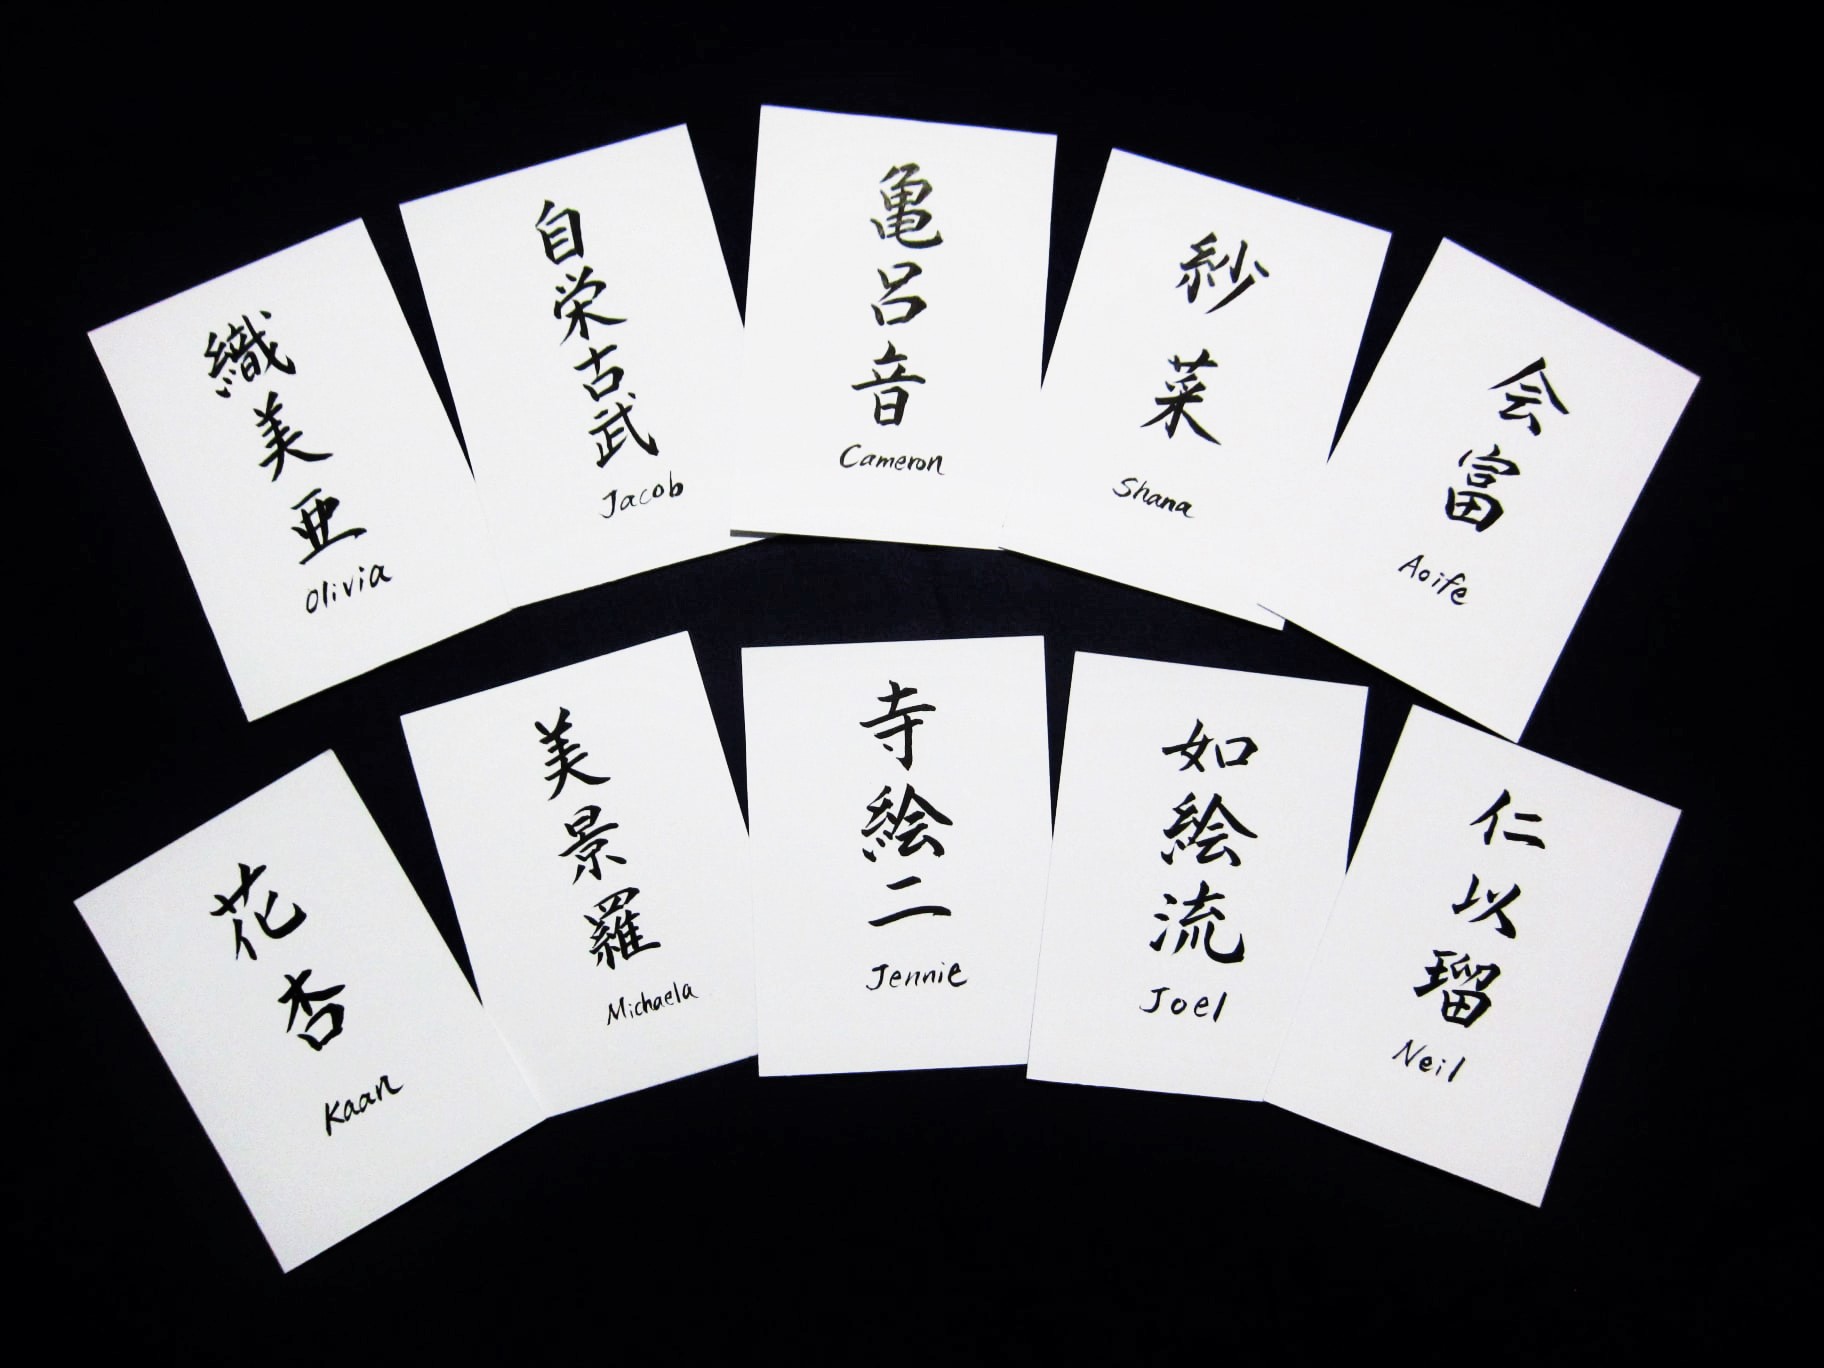 織美亜
Olivia
自栄古武
Jacob
亀呂音
Cameron
紗菜
Shana
会富
Aoife
花杏
Kaan
美景羅
Michaela
寺絵二
Jennie
如絵流
Joel
仁以瑠
Neil